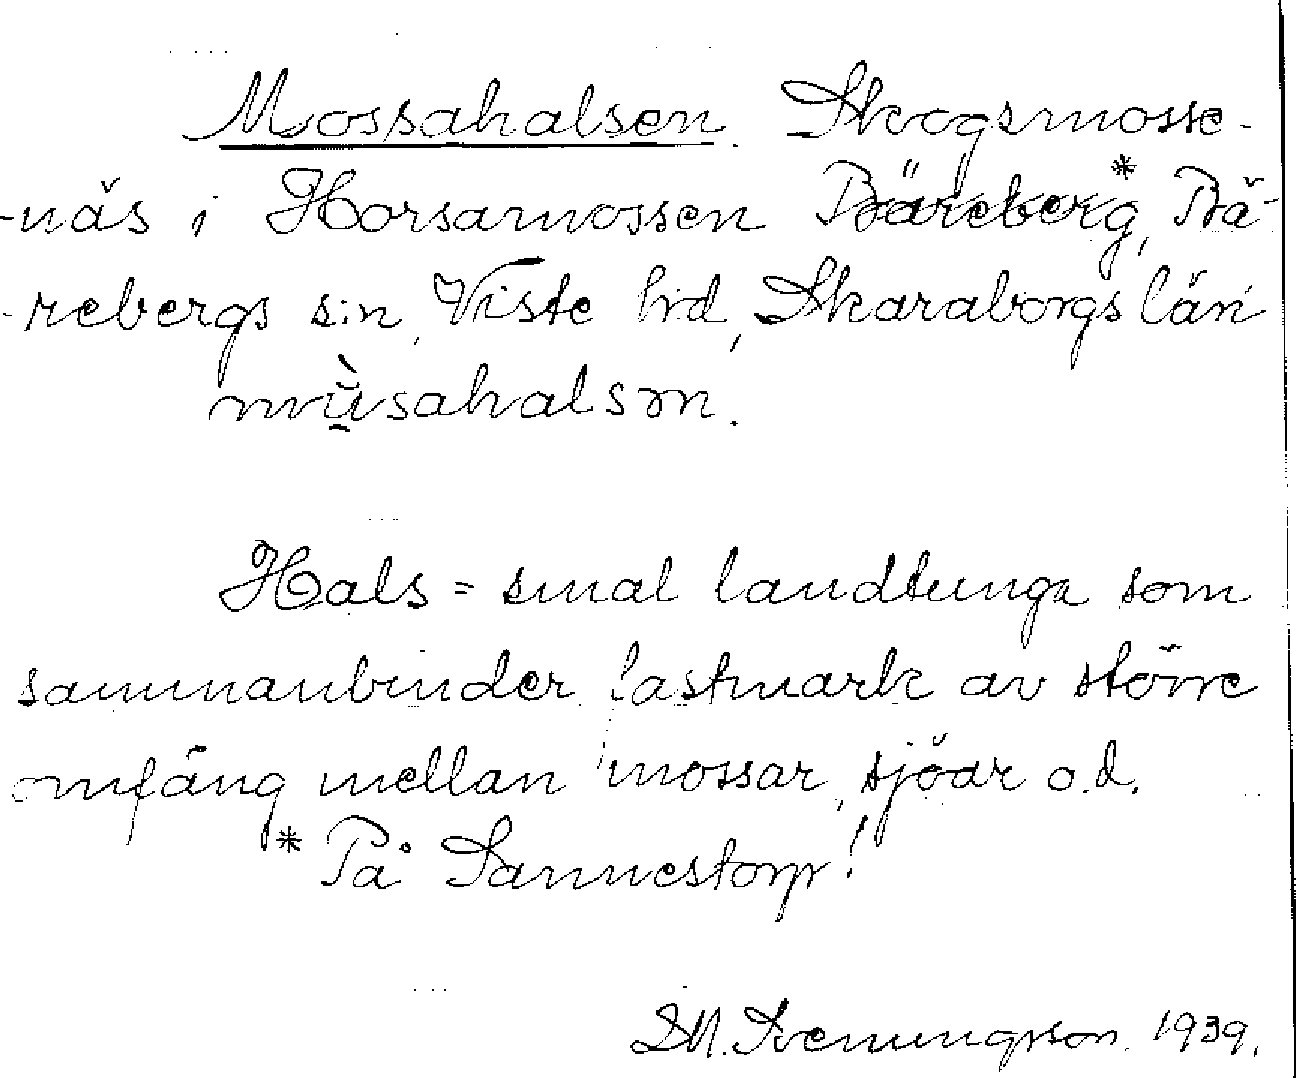 Mossahalsen. Skogsmosse-
-näs i Horsamossen Bäreberg*, Bä-
-rebergs s:n, Viste hd, Skaraborgs län
Hals = smal landtunga som
sammanbinder fastmark av större
omfång mellan mossar, sjöar o.d.
* På Sannestorp!
Svenungsson. 1939.